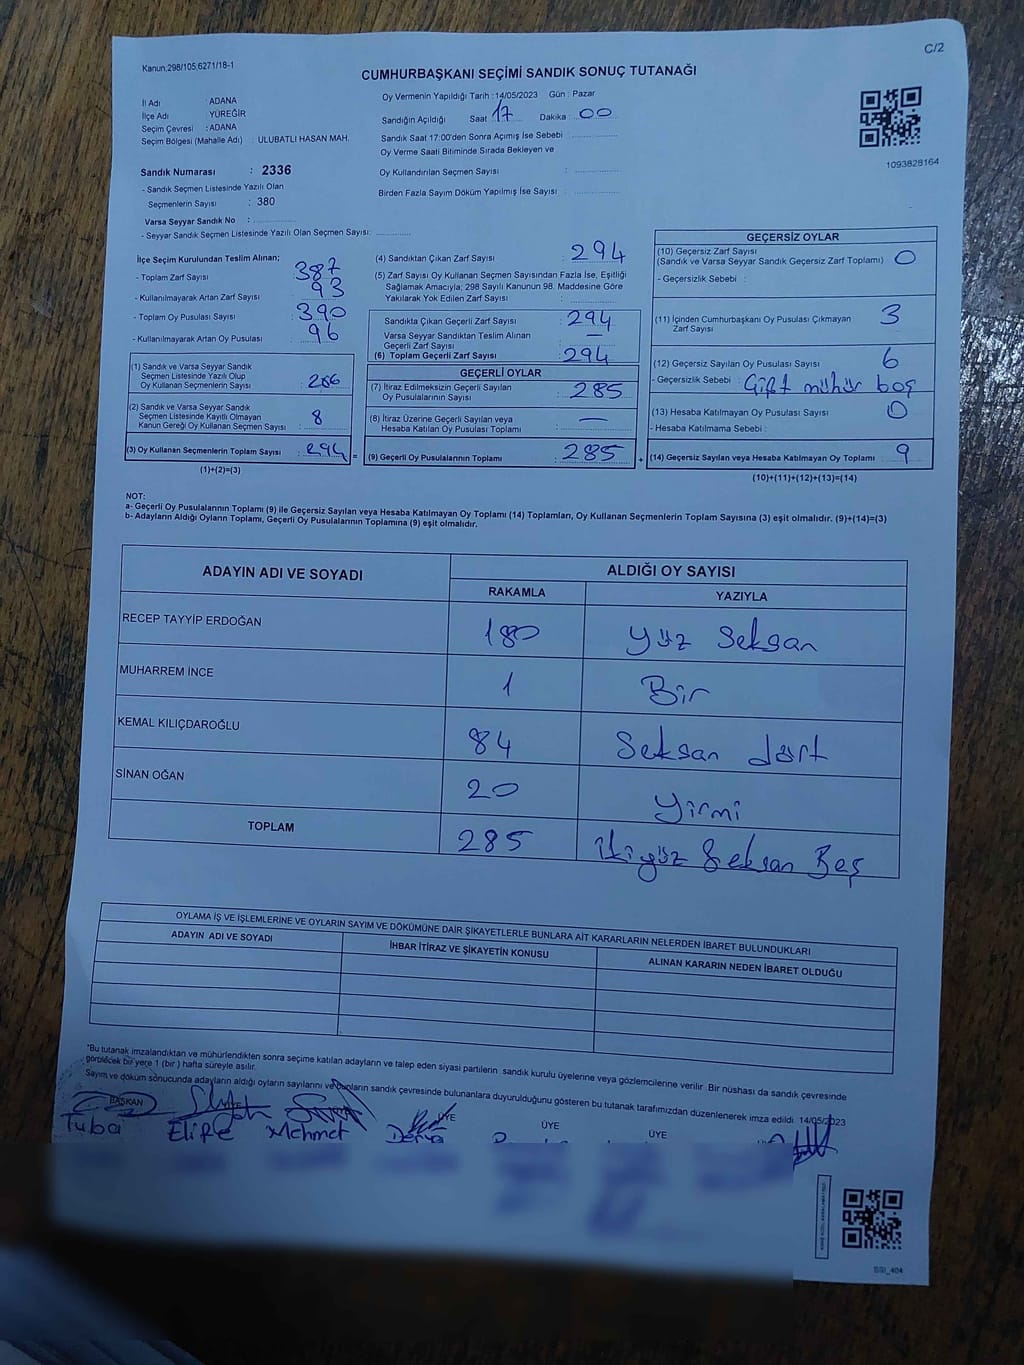 C/2
Kanun,298/105,6271/18-1
CUMHURBAŞKANI SEÇİMİ SANDIK SONUÇ TUTANAĞI
İl Adı ADANA
İlçe Adı YÜREĞİR
Seçim Çevresi : ADANA
Seçim Bölgesi (Mahalle Adı) : ULUBATLI HASAN MAH.
Oy Vermenin Yapıldığı Tarih : 14/05/2023 Gün : Pazar
Sandığın Açıldığı Saat 17 Dakika : 00
Sandık Saat 17:00'den Sonra Açımış İse Sebebi :
Oy Verme Saati Bitiminde Sırada Bekleyen ve
Oy Kullandırılan Seçmen Sayısı :
Birden Fazla Sayım Döküm Yapılmış İse Sayısı :
1093828164
Sandık Numarası : 2336
- Sandık Seçmen Listesinde Yazılı Olan
Seçmenlerin Sayısı : 380
Varsa Seyyar Sandık No :
- Seyyar Sandık Seçmen Listesinde Yazılı Olan Seçmen Sayısı:
İlçe Seçim Kurulundan Teslim Alınan;
- Toplam Zarf Sayısı : 387
- Kullanılmayarak Artan Zarf Sayısı : 93
- Toplam Oy Pusulası Sayısı : 390
- Kullanılmayarak Artan Oy Pusulası : 96
(1) Sandık ve Varsa Seyyar Sandık
Seçmen Listesinde Yazılı Olup
Oy Kullanan Seçmenlerin Sayısı : 286
(2) Sandık ve Varsa Seyyar Sandık
Seçmen Listesinde Kayıtlı Olmayan
Kanun Gereği Oy Kullanan Seçmen Sayısı : 8
(3) Oy Kullanan Seçmenlerin Toplam Sayısı : 294 =
(1)+(2)=(3)
(4) Sandıktan Çıkan Zarf Sayısı : 294
(5) Zarf Sayısı Oy Kullanan Seçmen Sayısından Fazla İse, Eşitliği
Sağlamak Amacıyla; 298 Sayılı Kanunun 98. Maddesine Göre
Yakılarak Yok Edilen Zarf Sayısı :
Sandıkta Çıkan Geçerli Zarf Sayısı : 294
Varsa Seyyar Sandıktan Teslim Alınan
Geçerli Zarf Sayısı : —
(6) Toplam Geçerli Zarf Sayısı : 294
GEÇERLİ OYLAR
(7) İtiraz Edilmeksizin Geçerli Sayılan
Oy Pusulalarının Sayısı : 285
(8) İtiraz Üzerine Geçerli Sayılan veya
Hesaba Katılan Oy Pusulası Toplamı : —
(9) Geçerli Oy Pusulalarının Toplamı : 285 +
GEÇERSİZ OYLAR
(10) Geçersiz Zarf Sayısı
(Sandık ve Varsa Seyyar Sandık Geçersiz Zarf Toplamı) : 0
- Geçersizlik Sebebi :
(11) İçinden Cumhurbaşkanı Oy Pusulası Çıkmayan
Zarf Sayısı : 3
(12) Geçersiz Sayılan Oy Pusulası Sayısı : 6
- Geçersizlik Sebebi : Çift mühür boş
(13) Hesaba Katılmayan Oy Pusulası Sayısı : 0
- Hesaba Katılmama Sebebi :
(14) Geçersiz Sayılan veya Hesaba Katılmayan Oy Toplamı : 9
(10)+(11)+(12)+(13)=(14)
NOT:
a- Geçerli Oy Pusulalarının Toplamı (9) ile Geçersiz Sayılan veya Hesaba Katılmayan Oy Toplamı (14) Toplamları, Oy Kullanan Seçmenlerin Toplam Sayısına (3) eşit olmalıdır. (9)+(14)=(3)
b- Adayların Aldığı Oyların Toplamı, Geçerli Oy Pusulalarının Toplamına (9) eşit olmalıdır.
ADAYIN ADI VE SOYADI ALDIĞI OY SAYISI
RAKAMLA YAZIYLA
RECEP TAYYİP ERDOĞAN 180 Yüz Seksan
MUHARREM İNCE 1 Bir
KEMAL KILIÇDAROĞLU 84 Seksan dört
SİNAN OĞAN 20 Yirmi
TOPLAM 285 İkiyüz Seksan Beş
OYLAMA İŞ VE İŞLEMLERİNE VE OYLARIN SAYIM VE DÖKÜMÜNE DAİR ŞİKAYETLERLE BUNLARA AİT KARARLARIN NELERDEN İBARET BULUNDUKLARI
ADAYIN ADI VE SOYADI İHBAR İTİRAZ VE ŞİKAYETİN KONUSU ALINAN KARARIN NEDEN İBARET OLDUĞU
*Bu tutanak imzalandıktan ve mühürlendikten sonra seçime katılan adayların ve talep eden siyasi partilerin sandık kurulu üyelerine veya gözlemcilerine verilir. Bir nüshası da sandık çevresinde
görülecek bir yere 1 (bir) hafta süreyle asılır.
Sayım ve döküm sonucunda adayların aldığı oyların sayılarını ve bunların sandık çevresinde bulunanlara duyurulduğunu gösteren bu tutanak tarafımızdan düzenlenerek imza edildi. 14/05/2023
BAŞKAN ÜYE ÜYE ÜYE
Tuba Elife Mehmet Derya
SSI_404